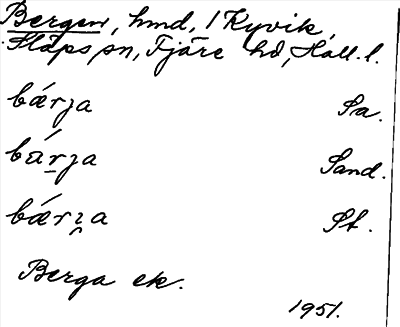 Bergen, hmd, 1 Kyvik,
Släps sn, Fjäre hd, Hall. l.
bǽrȷa Sa.
bá̈rȷa Sand.
bǽrı̯a St.
Berga ek.
1951.